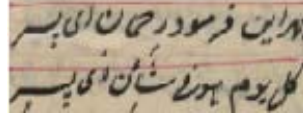 بهر این فرمود رحمان ای پسر
کل یوم هو فی شان ای پسر